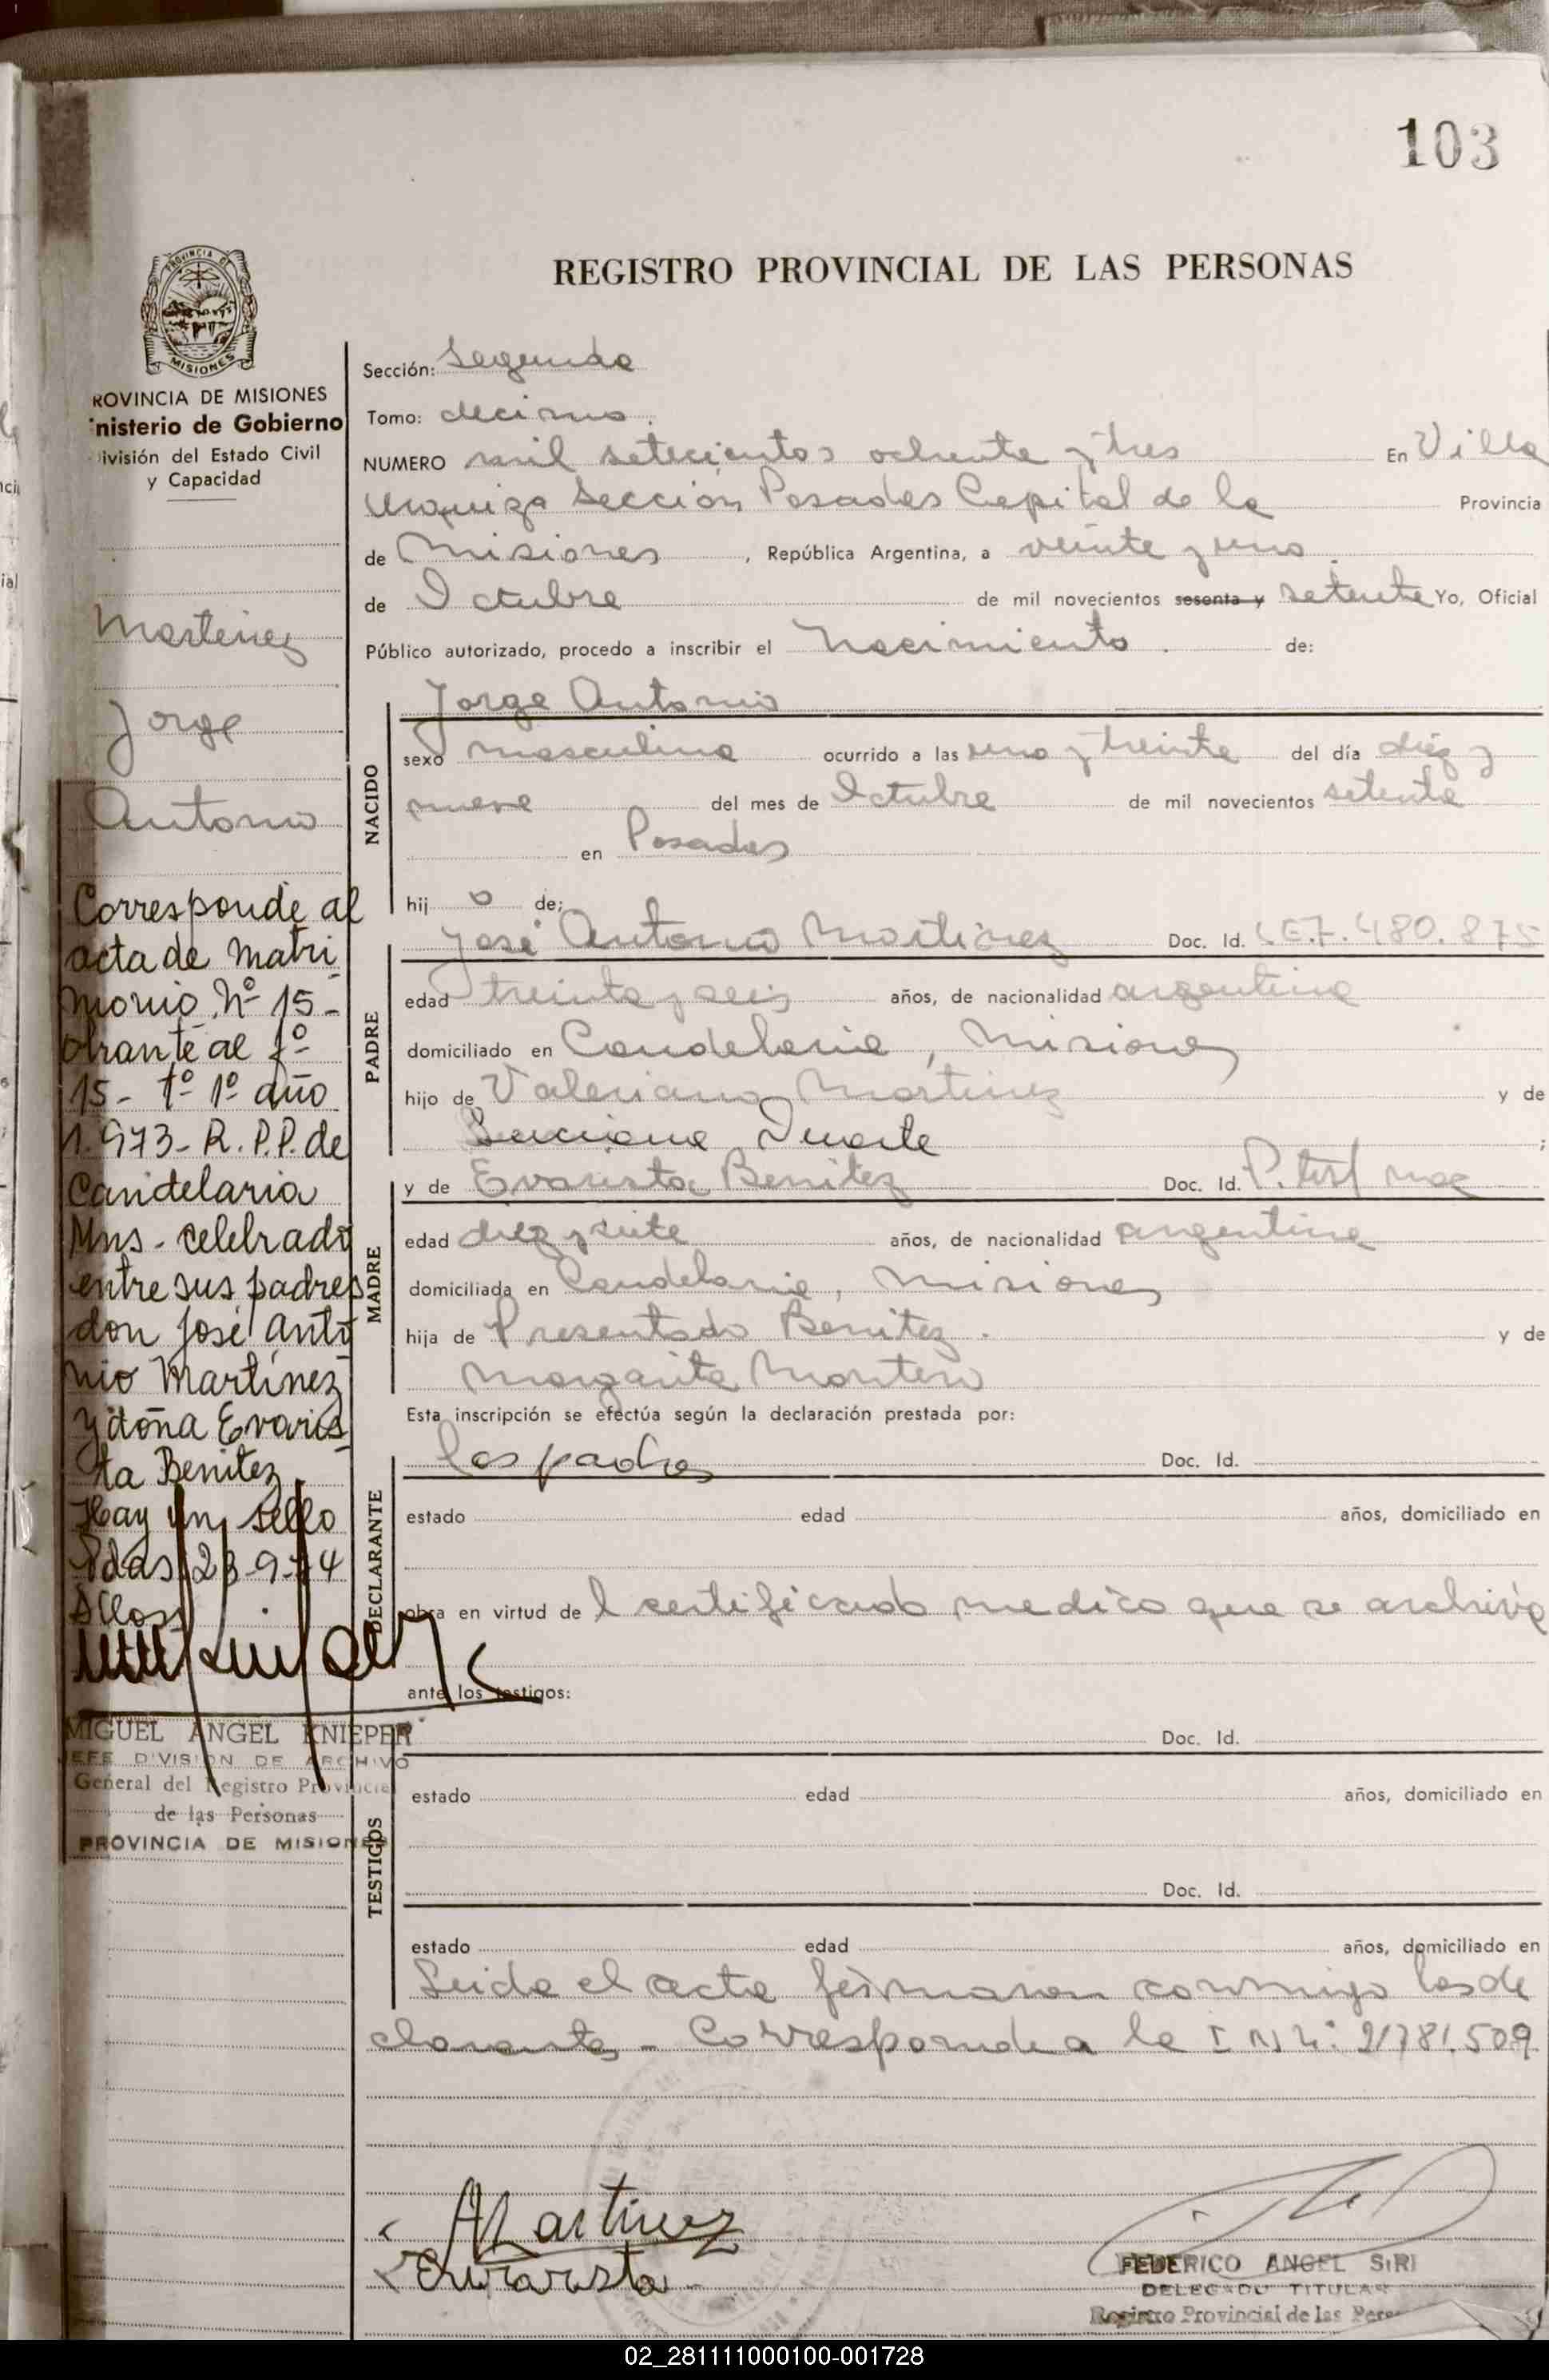 103
REGISTRO PROVINCIAL DE LAS PERSONAS
PROVINCIA DE
MISIONES
ROVINCIA DE MISIONES
nisterio de Gobierno
ivisión del Estado Civil
y Capacidad
Martinez
Jorge
Antonio
Corresponde al
acta de Matri
monio Nº 15-
obrante al fº
15- tº 1º año
1.973- R.P.P. de
Candelaria
Mns- celebrado
entre sus padres
don José Anto
nio Martínez
y doña Evaris
ta Benitez.
Hay un sello
Pdas 23-9-74
MIGUEL ANGEL KNIEPER
JEFE DIVISION DE ARCHIVO
General del Registro Provincial
de las Personas
PROVINCIA DE MISIONES
Sección: Segunda
Tomo: decimo.
NUMERO mil setecientos ochenta y tres En Villa
Urquiza Sección Posadas Capital de la Provincia
de Misiones, República Argentina, a veinte y uno
de Octubre de mil novecientos sesenta y setenta Yo, Oficial
Público autorizado, procedo a inscribir el Nacimiento. de:
NACIDO
Jorge Antonio
sexo masculino ocurrido a las una y treinta del día diez y
nueve del mes de Octubre de mil novecientos setenta
en Posadas
hij o de:
PADRE
José Antonio Martínez Doc. Id. L.E.7.480.875
edad treinta y seis años, de nacionalidad argentina
domiciliado en Candelaria, Misiones
hijo de Valeriano Martinez y de
Duarte ;
MADRE
y de Evarista Benitez Doc. Id.
edad diez y siete años, de nacionalidad argentina
domiciliada en Candelaria, Misiones
hija de Presentado Benitez. y de
Margarita Montero
Esta inscripción se efectúa según la declaración prestada por:
DECLARANTE
los padres Doc. Id.
estado edad años, domiciliado en
obra en virtud de l certificado medico que se archiva
ante los testigos:
TESTIGOS
Doc. Id.
estado edad años, domiciliado en
Doc. Id.
estado edad años, domiciliado en
Leida el acta firmaron conmigo los de
clarantes - Corresponde a la I Nº: 21781.509
Martinez
Evarista
FEDERICO ANGEL SIRI
DELEGADO TITULAR
Registro Provincial de las Pers
02_281111000100-001728